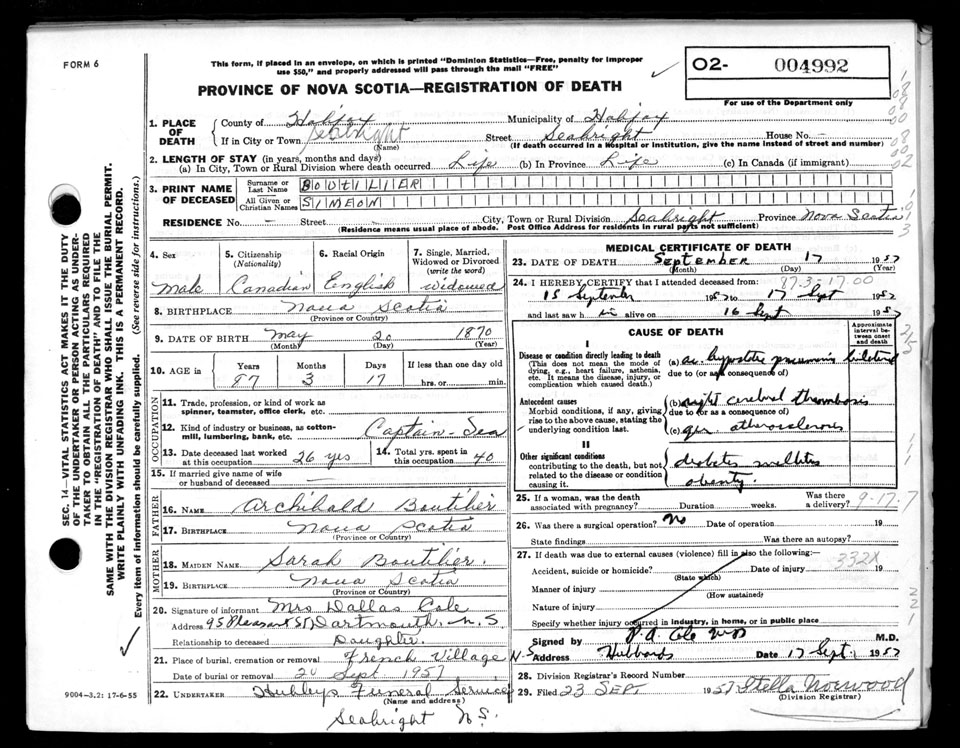 FORM 6
This form, if placed in an envelope, on which is printed "Dominion Statistics—Free, penalty for improper
use $50," and properly addressed will pass through the mail "FREE"
O2- 004992
For use of the Department only
PROVINCE OF NOVA SCOTIA—REGISTRATION OF DEATH
1. PLACE OF DEATH
County of Halifax Municipality of Halifax
If in City or Town Seabright Street Seabright House No. –
(Name) (If death occurred in a Hospital or institution, give the name instead of street and number)
2. LENGTH OF STAY (in years, months and days)
(a) In City, Town or Rural Division where death occurred Life (b) In Province Life (c) In Canada (if immigrant)
3. PRINT NAME OF DECEASED
Surname or Last Name BOUTILIER
All Given or Christian Names SIMEON
RESIDENCE No. – Street – City, Town or Rural Division Seabright Province Nova Scotia
(Residence means usual place of abode. Post Office Address for residents in rural parts not sufficient)
4. Sex 5. Citizenship (Nationality) 6. Racial Origin 7. Single, Married, Widowed or Divorced (write the word)
Male Canadian English Widowed
8. BIRTHPLACE Nova Scotia
(Province or Country)
9. DATE OF BIRTH May 20 1870
(Month) (Day) (Year)
10. AGE in Years Months Days If less than one day old
87 3 17 hrs. or min.
OCCUPATION
11. Trade, profession, or kind of work as
spinner, teamster, office clerk, etc.
12. Kind of industry or business, as cotton-
mill, lumbering, bank, etc. Captain - Sea
13. Date deceased last worked at this occupation 26 yrs 14. Total yrs. spent in this occupation 40
15. If married give name of wife
or husband of deceased –
FATHER
16. NAME Archibald Boutilier
17. BIRTHPLACE Nova Scotia
(Province or Country)
MOTHER
18. MAIDEN NAME Sarah Boutilier.
19. BIRTHPLACE Nova Scotia
(Province or Country)
20. Signature of informant Mrs Dallas Cole
Address 95 Pleasant St, Dartmouth, N.S
Relationship to deceased Daughter.
21. Place of burial, cremation or removal French Village N.S
Date of burial or removal 20 Sept 1957
22. UNDERTAKER Hubleys Funeral Service
(Name and address)
Seabright N.S.
9004—3.2: 17-6-55
MEDICAL CERTIFICATE OF DEATH
23. DATE OF DEATH September 17 1957
(Month) (Day) (Year)
24. I HEREBY CERTIFY that I attended deceased from:
15 September 1957 to 17 Sept 1957
and last saw h im alive on 16 Sept 1957
CAUSE OF DEATH
Approximate interval between onset and death
I
Disease or condition directly leading to death
(This does not mean the mode of
dying, e.g., heart failure, asthenia,
etc. It means the disease, injury, or
complication which caused death.)
(a) ac. hypostatic pneumonia bilateral
due to (or as a consequence of)
Antecedent causes
Morbid conditions, if any, giving
rise to the above cause, stating the
underlying condition last.
(b) right cerebral thrombosis
due to (or as a consequence of)
(c) gen. atherosclerosis
II
Other significant conditions
contributing to the death, but not
related to the disease or condition
causing it.
diabetes mellitus
obesity.
25. If a woman, was the death
associated with pregnancy? Duration weeks. Was there a delivery?
9-17-7
26. Was there a surgical operation? No Date of operation 19
State findings Was there an autopsy?
27. If death was due to external causes (violence) fill in also the following:—
332X
Accident, suicide or homicide? Date of injury 19
(State which)
Manner of injury
(How sustained)
Nature of injury
Specify whether injury occurred in industry, in home, or in public place
Signed by P.A. Cole MD M.D.
Address Hubbards Date 17 Sept 1957
28. Division Registrar's Record Number
29. Filed 23 SEPT 1957 Stella Norwood
(Division Registrar)
SEC. 14—VITAL STATISTICS ACT MAKES IT THE DUTY
OF THE UNDERTAKER OR PERSON ACTING AS UNDER-
TAKER TO OBTAIN ALL THE PARTICULARS REQUIRED
IN THE "REGISTRATION OF DEATH" AND TO FILE THE
SAME WITH THE DIVISION REGISTRAR WHO SHALL ISSUE THE BURIAL PERMIT.
WRITE PLAINLY WITH UNFADING INK. THIS IS A PERMANENT RECORD.
Every item of information should be carefully supplied. (See reverse side for instructions.)